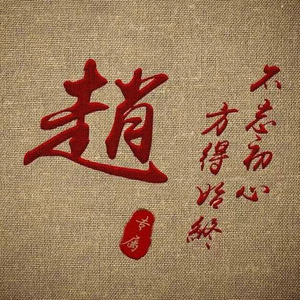 趙
不忘初心
方得始終
专属